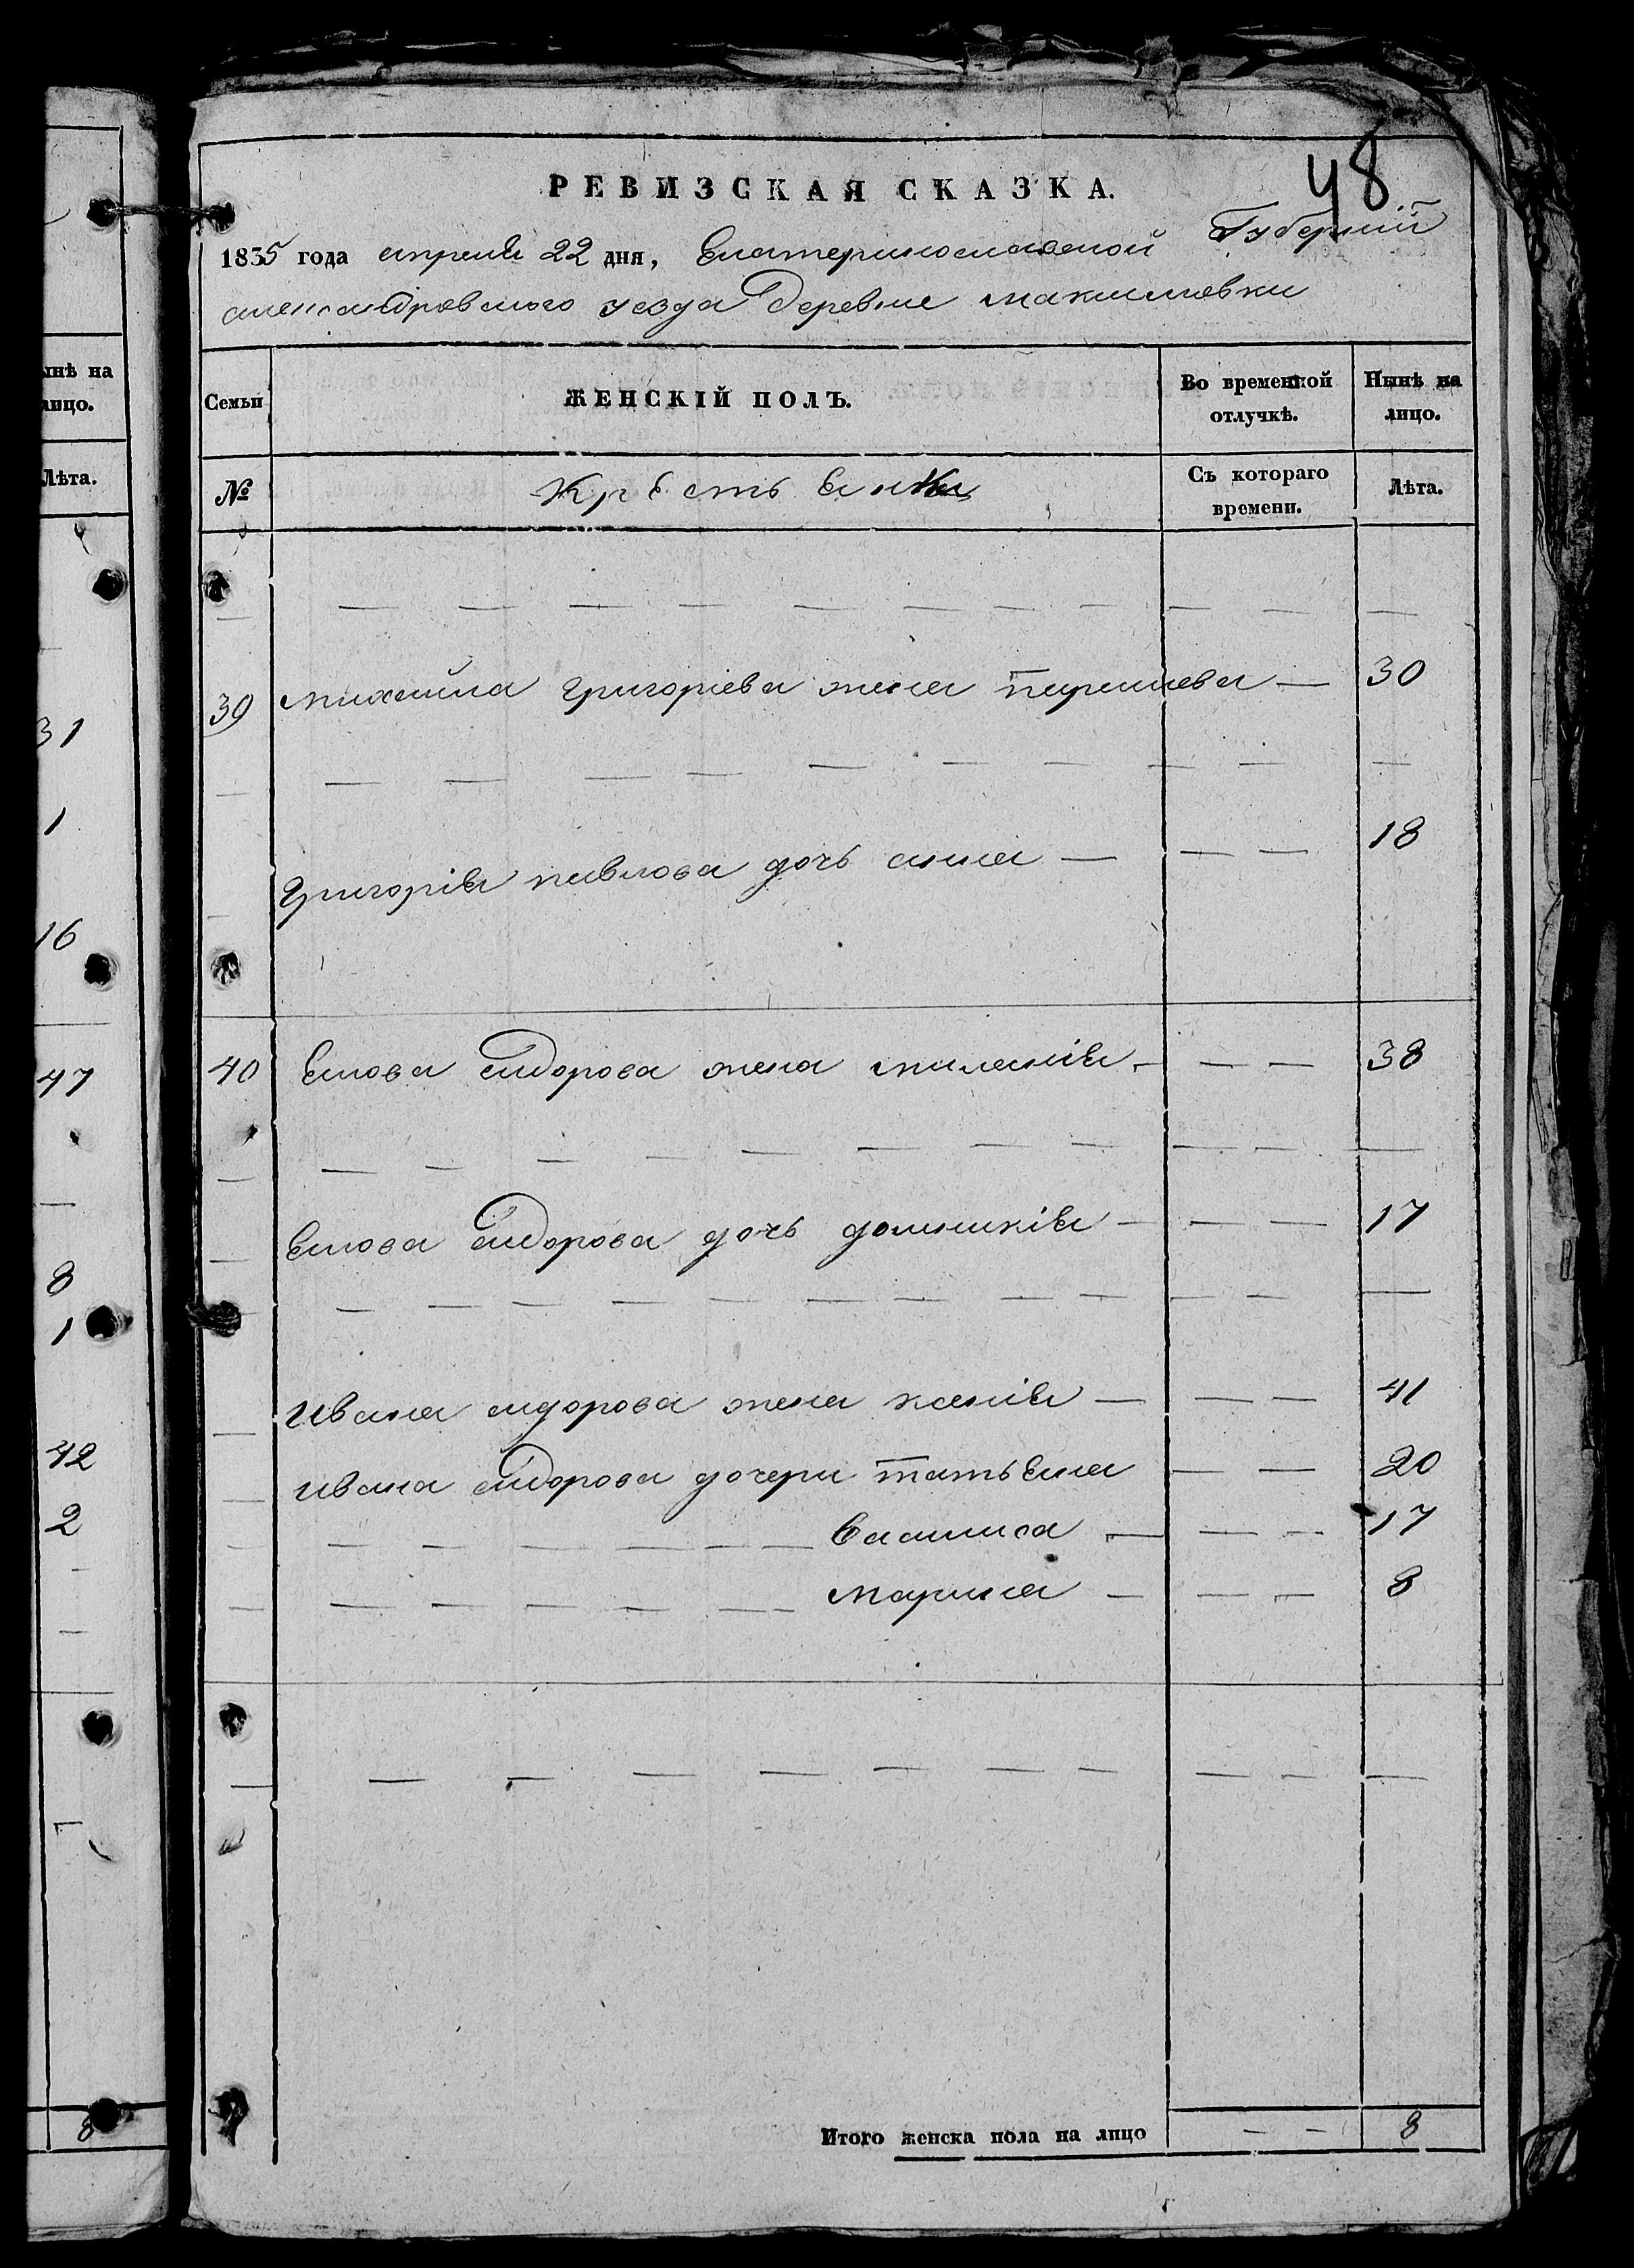 ынѣ на
лицо.
Лѣта.
31
1
16
47
8
1
42
2
8
48
РЕВИЗСКАЯ СКАЗКА.
1835 года апреля 22 дня, Екатеринославской Губернiи
александровского уезда Деревне максимовки
Семьи
ЖЕНСКІЙ ПОЛЪ.
Во временной отлучкѣ.
Нынѣ на лицо.
№
Крѣстьянки
Съ котораго времени.
Лѣта.
39 михайла григорiева жена парасковья — 30
григорiя павлова дочь анна — — — 18
40 Емова сидорова жена миланiя — — — 38
Емова сидорова дочь домникiя — — — 17
ивана сидорова жена ксенiя — — — 41
ивана сидорова дочери татьяна — — 20
василиса — — — 17
марина — — — 8
Итого женска пола на лицо — — 8